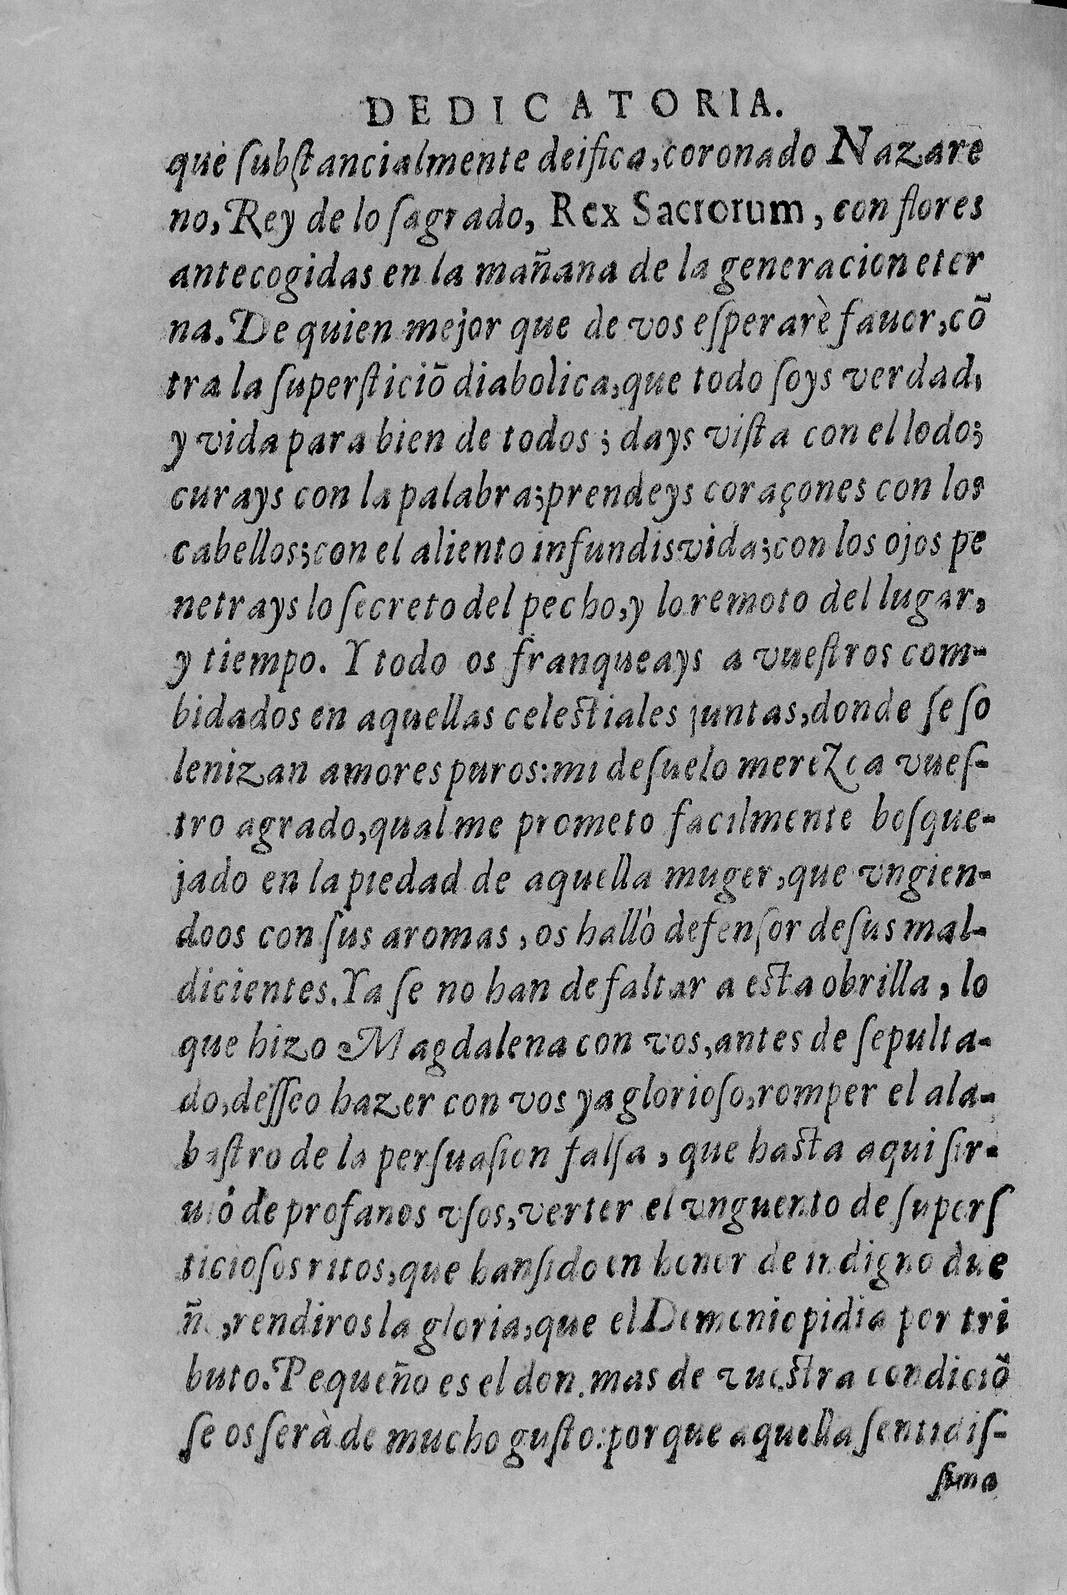 DEDICATORIA.
que ſubſtancialmente deifica, coronado Nazare
no, Rey de lo ſagrado, Rex Sacrorum, con flores
antecogidas en la mañana de la generacion eter
na. De quien mejor que de vos eſperarè fauor, cõ
tra la ſuperſticiõ diabolica, que todo ſoys verdad,
y vida para bien de todos; days viſta con el lodo;
curays con la palabra; prendeys coraçones con los
cabellos; con el aliento infundis vida; con los ojos pe
netrays lo ſecreto del pecho, y lo remoto del lugar,
y tiempo. Y todo os franqueays a vueſtros com-
bidados en aquellas celeſtiales juntas, donde ſe ſo
lenizan amores puros: mi deſuelo merezca vueſ-
tro agrado, qual me prometo facilmente boſque-
jado en la piedad de aquella muger, que vngien-
doos con ſus aromas, os hallò defenſor de ſus mal-
dicientes. Ya ſe no han de faltar a eſta obrilla, lo
que hizo Magdalena con vos, antes de ſepulta-
do, deſſeo hazer con vos ya glorioſo, romper el ala-
baſtro de la perſuaſion falſa, que haſta aqui ſir-
uiò de profanos vſos, verter el vnguento de ſuperſ
ticioſos ritos, que han ſido en honor de indigno due
ño, rendiros la gloria, que el Demonio pidia por tri
buto. Pequeño es el don, mas de vueſtra condiciõ
ſe os ſerà de mucho guſto: porque aquella ſentidiſ-
ſima